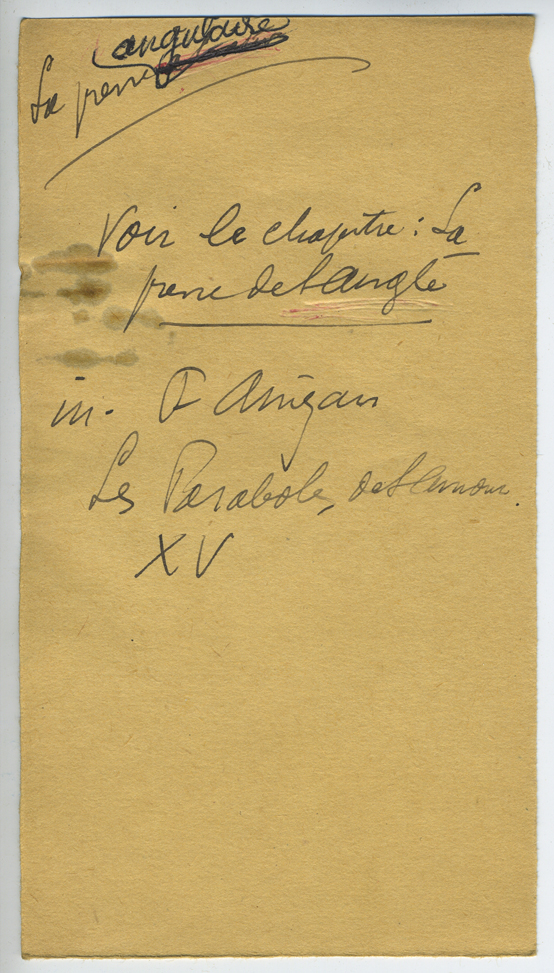 angulaire
La pierre
Voir le chapitre : La
pierre de l'angle
in.
Les Paraboles de l'Amour.
XV